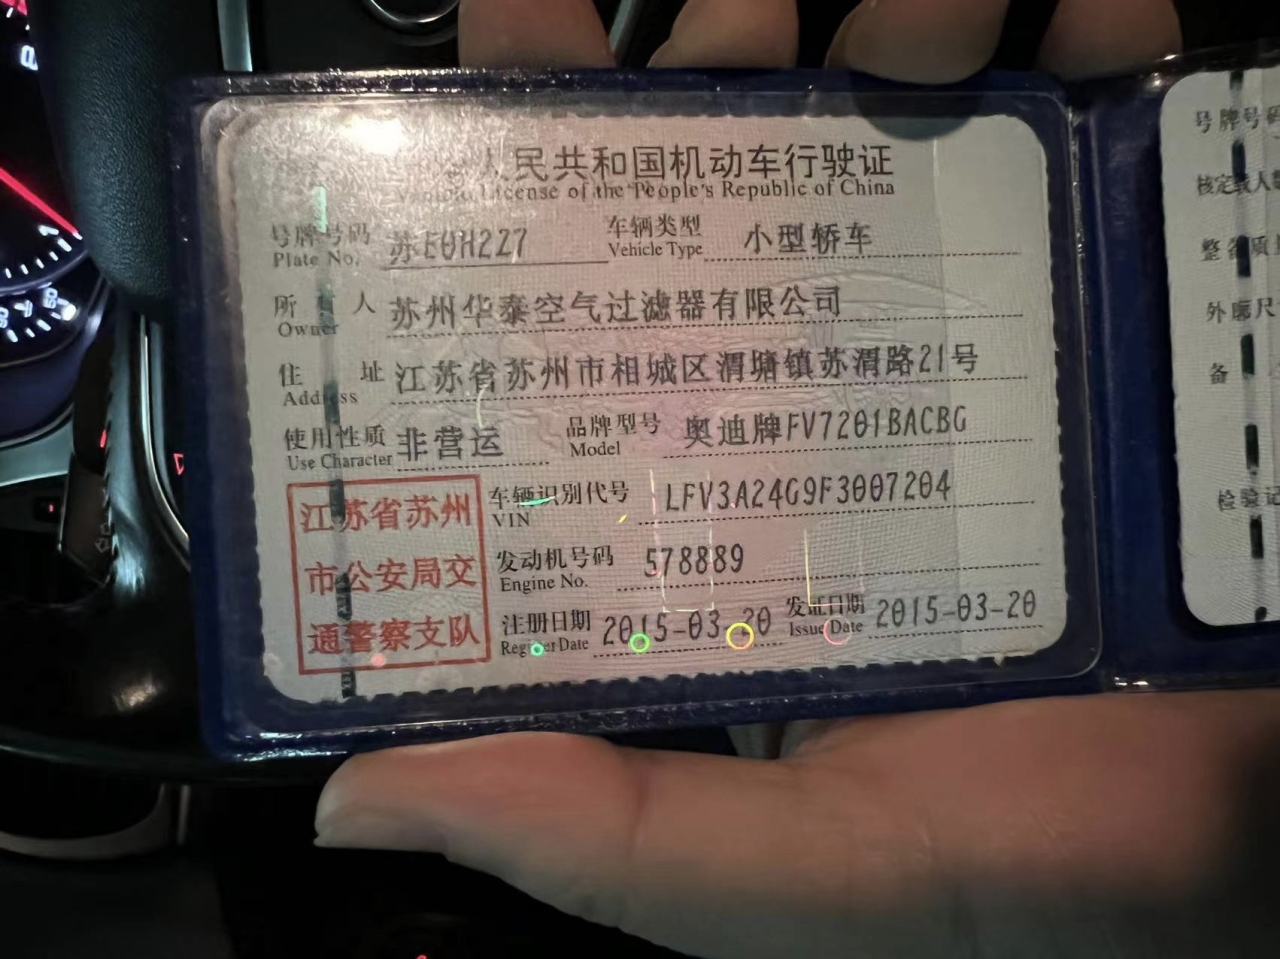 人民共和国机动车行驶证
License of the People's Republic of China
号牌号码 苏E0H2Z7 车辆类型 小型轿车
Plate No. Vehicle Type
所有人 苏州华泰空气过滤器有限公司
Owner
住址 江苏省苏州市相城区渭塘镇苏渭路21号
Address
使用性质 非营运 品牌型号 奥迪牌FV7201BACBG
Use Character Model
江苏省苏州
市公安局交
通警察支队
车辆识别代号 LFV3A24G9F3007204
VIN
发动机号码 578889
Engine No.
注册日期 2015-03-20 发证日期 2015-03-20
Register Date Issue Date
号牌号码
核定载人数
整备质量
外廓尺
备
检验记